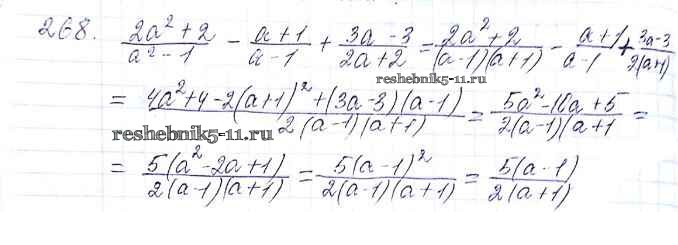 268. (2a² + 2)/(a² - 1) - (a + 1)/(a - 1) + (3a - 3)/(2a + 2) = (2a² + 2)/((a - 1)(a + 1)) - (a + 1)/(a - 1) + (3a - 3)/(2(a + 1))
reshebnik5-11.ru
= (4a² + 4 - 2(a + 1)² + (3a - 3)(a - 1))/(2(a - 1)(a + 1)) = (5a² - 10a + 5)/(2(a - 1)(a + 1) =
reshebnik5-11.ru
= (5(a² - 2a + 1))/(2(a - 1)(a + 1)) = (5(a - 1)²)/(2(a - 1)(a + 1)) = (5(a - 1))/(2(a + 1))